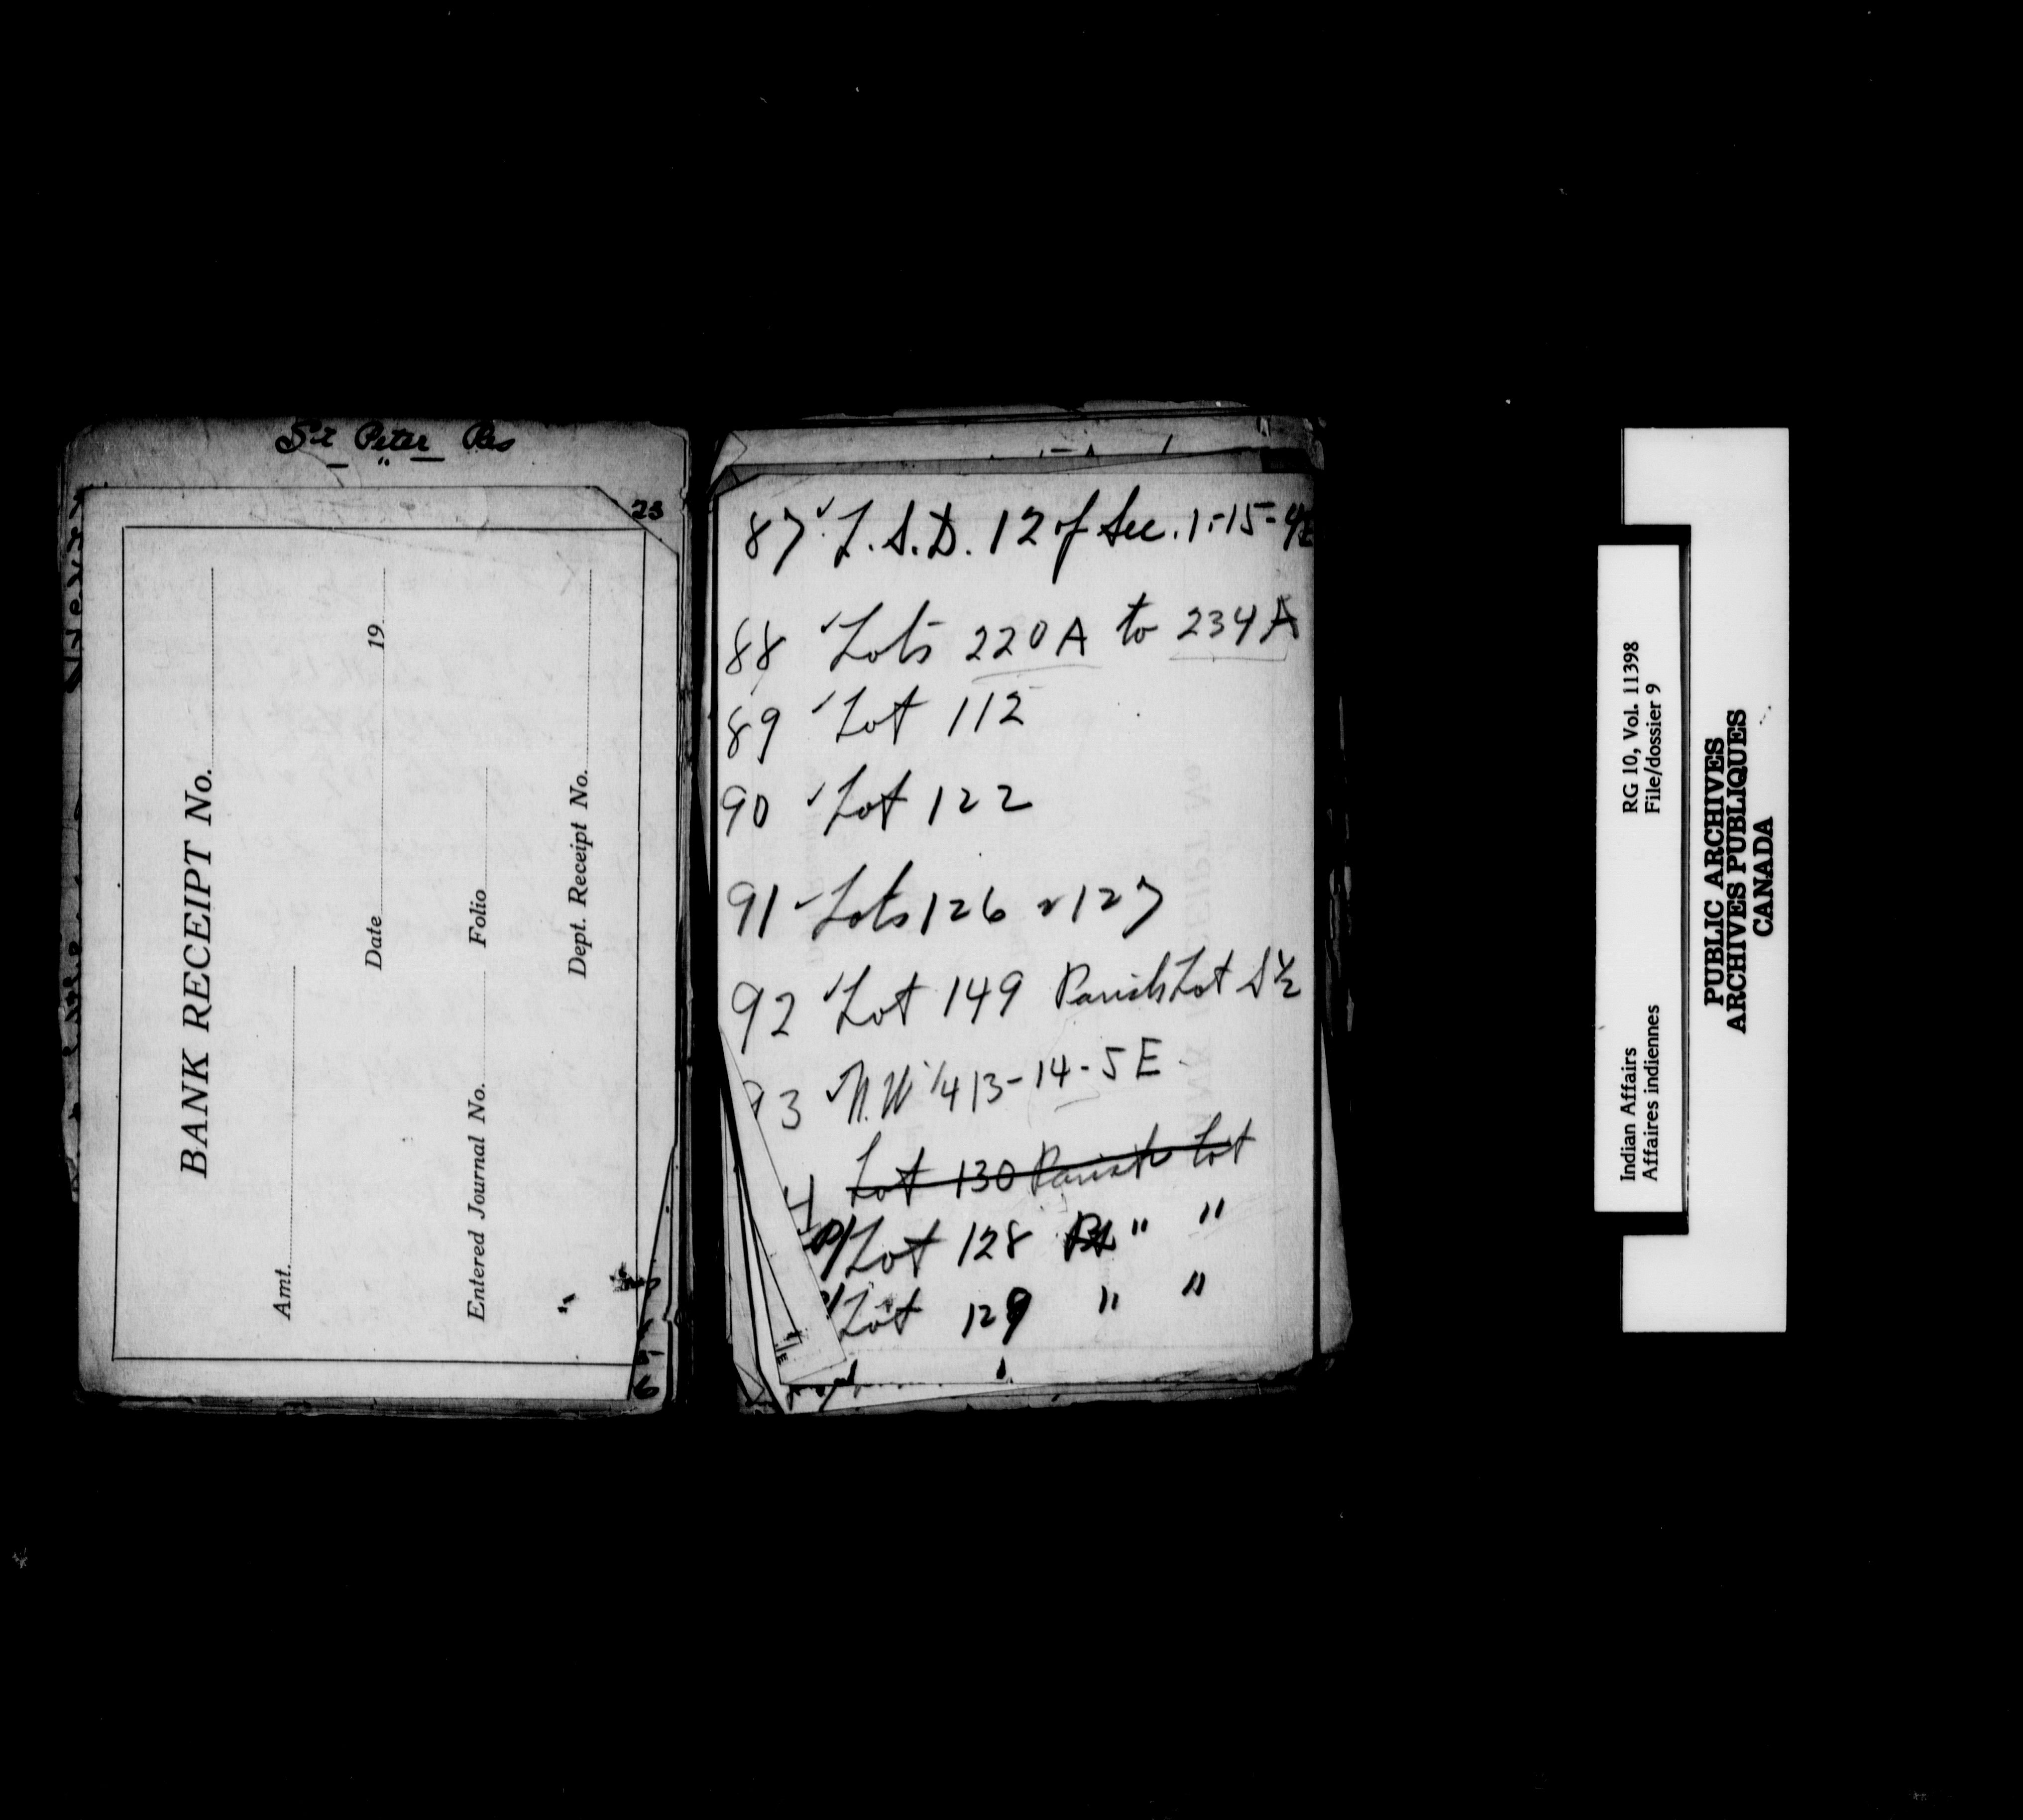 St Peter Res
23
BANK RECEIPT No.
Amt.
Date 19
Entered Journal No. Folio
Dept. Receipt No.
6
87 L.S.D. 12 of Sec. 1-15-4E
88 Lots 220A to 234A
89 Lot 112
90 Lot 122
91 Lots 126 & 127
92 Lot 149 Parish Lot S½
93 N.W ¼ 13-14-5E
4 Lot 130 Parish Lot
Lot 128 " "
Lot 129 " "
Indian Affairs RG 10, Vol. 11398
Affaires indiennes File/dossier 9
PUBLIC ARCHIVES
ARCHIVES PUBLIQUES
CANADA